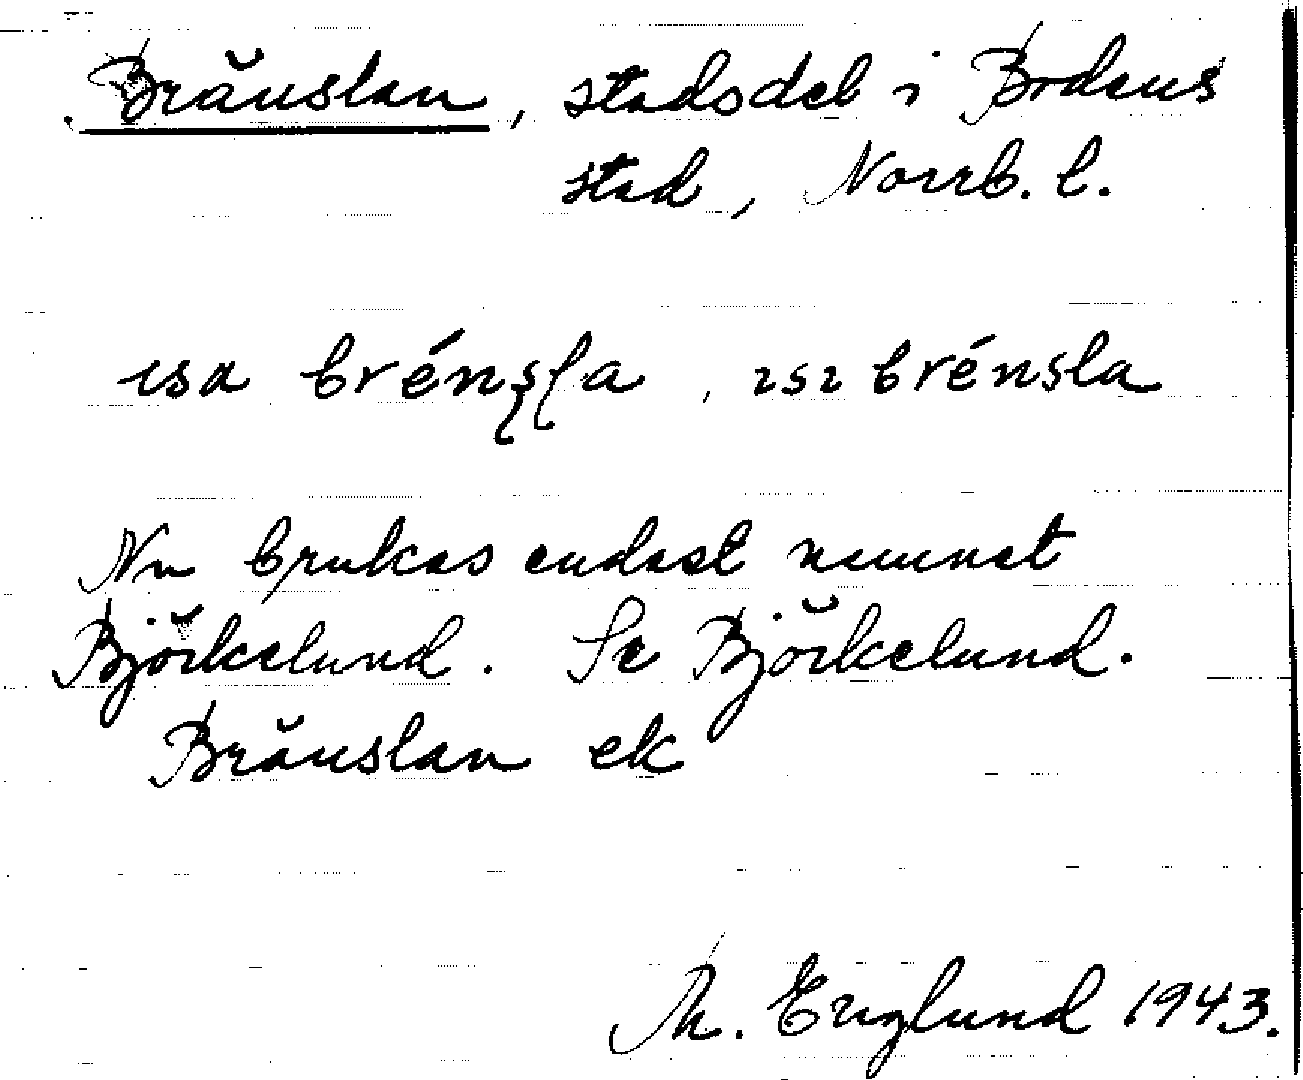 Bränslan, stadsdel i Bodens
stad, Norrb. l.
ısa brénsla, ısı brénsla
Nu brukas endast namnet
Björkelund. Se Björkelund.
Bränslan ek
M. Englund 1943.